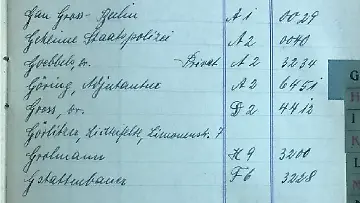 Gau Gross-Berlin A 1 0029
Geheime Staatspolizei A 2 0040
Goebbels Dr. Privat A 2 3234
Göring, Adjutantur A 2 6451
Gross, Dr. D 2 4412
Görlitzer, Lichterfelde, Limonenstr. 7
Grolmann H 9 3200
Gstattenbauer F 6 3228
G
H
I
K
L